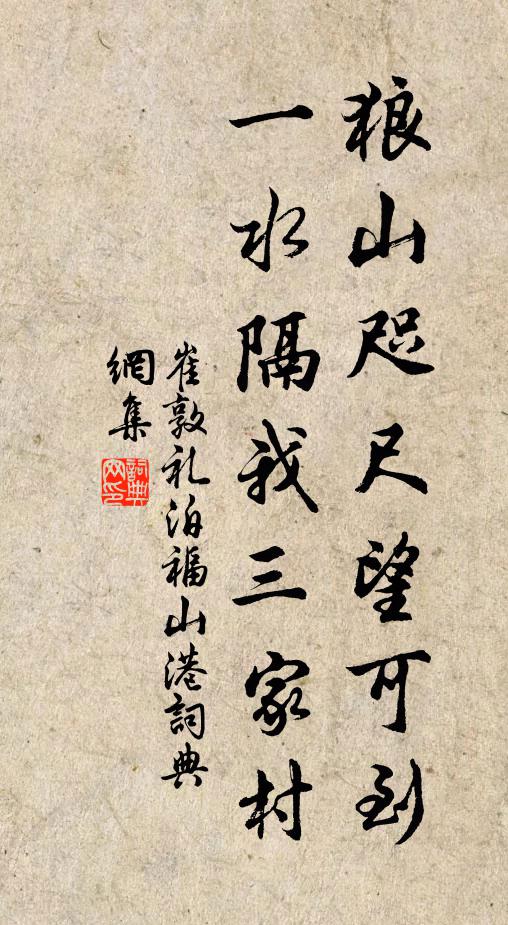 狼山咫尺望可到
一水隔我三家村
崔敦礼泊福山港詞典
網集
詞典
网印